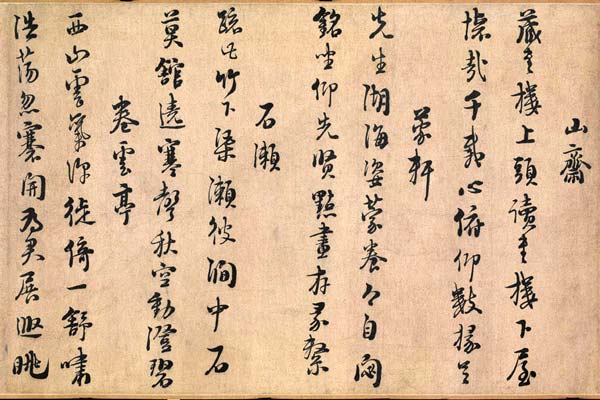 山齋
藏書樓上頭讀書樓下屋
懷哉千載心俯仰數椽足
蒙軒
先生湖海姿蒙養今自閟
銘坐仰先賢點畫存彖繫
石瀨
疏此竹下渠漱彼澗中石
莫館遶寒聲秋空動澄碧
卷雲亭
西山雲氣深徙倚一舒嘯
浩蕩忽褰開為君展遐眺